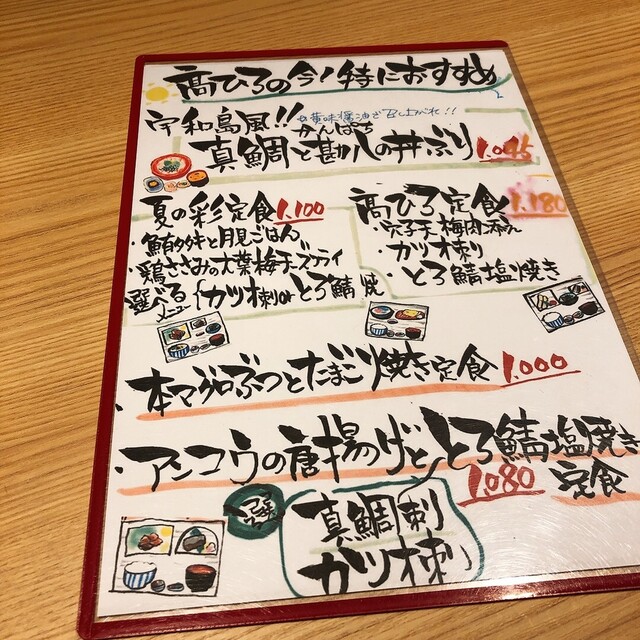 髙ひろの今!特におすすめ
宇和島風!!
黄味醤油で召し上がれ!!
かんぱち
真鯛と勘八の丼ぶり 1,045
夏の彩定食 1,100
・鮪タタキと月見ごはん
・鶏ささみの大葉梅チーズフライ
選べるメニュー{カツオ刺orとろ鯖焼
髙ひろ定食 1,180
・穴子天 梅肉添え
・カツオ刺
・とろ鯖塩焼き
・本マグロぶつとたまご焼き定食 1,000
・アンコウの唐揚げととろ鯖塩焼き
1,080 定食
真鯛刺
カツオ刺